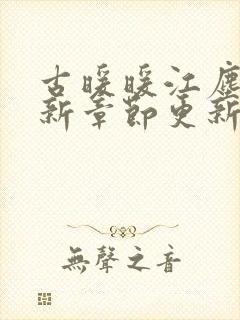 古暖暖江塵
新章節更新
無聲之音